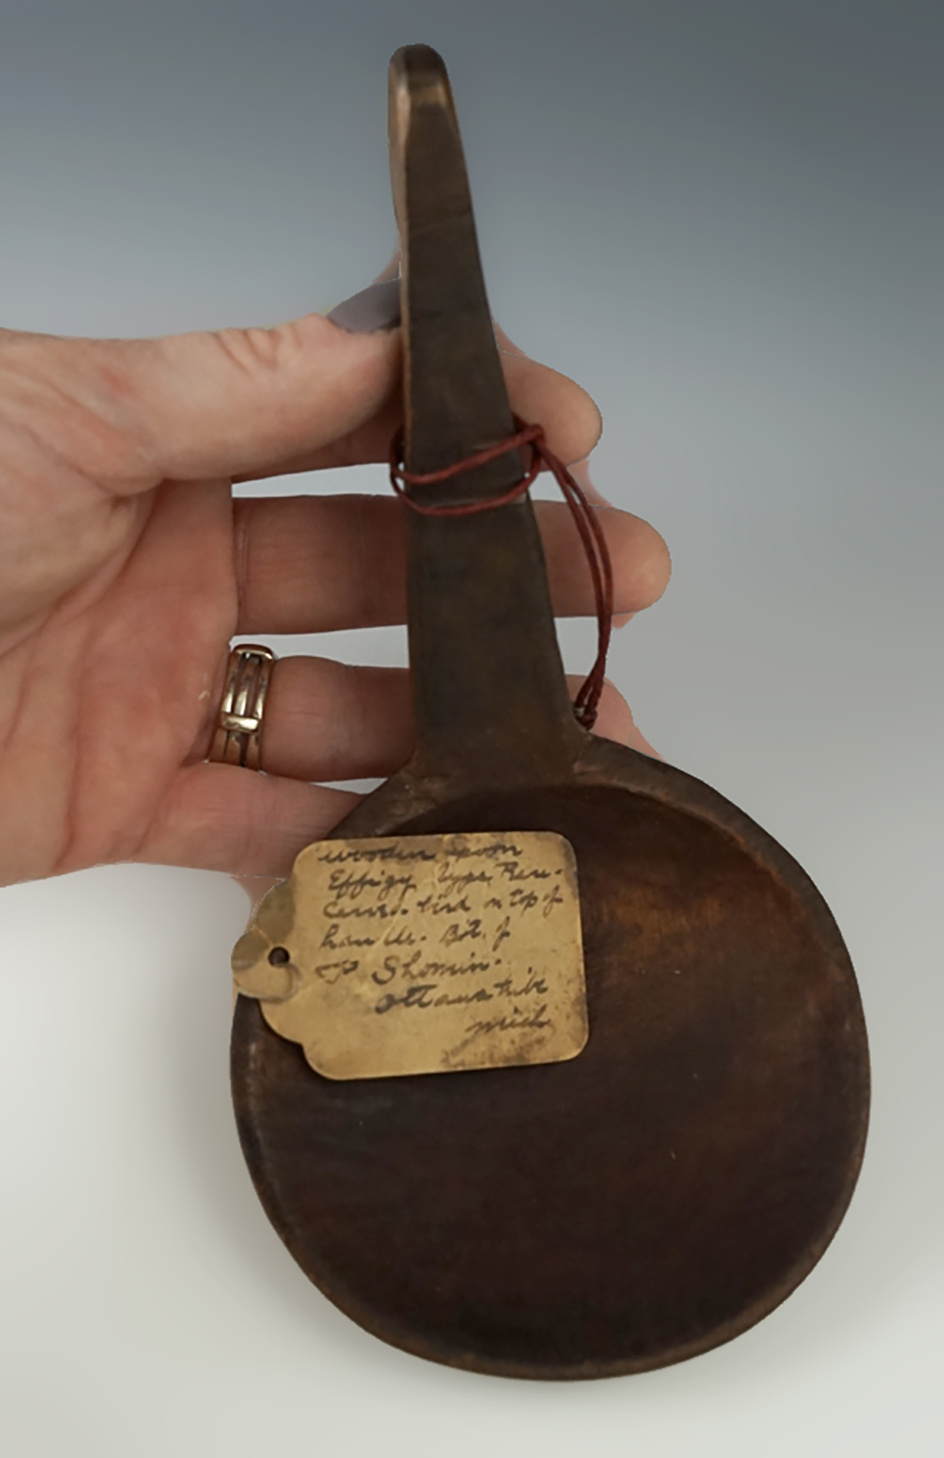 wooden spoon
Effigy type, Rare.
Carved bird on top of
handle. Bot. of
P Shomin.
Ottawa tribe
mich